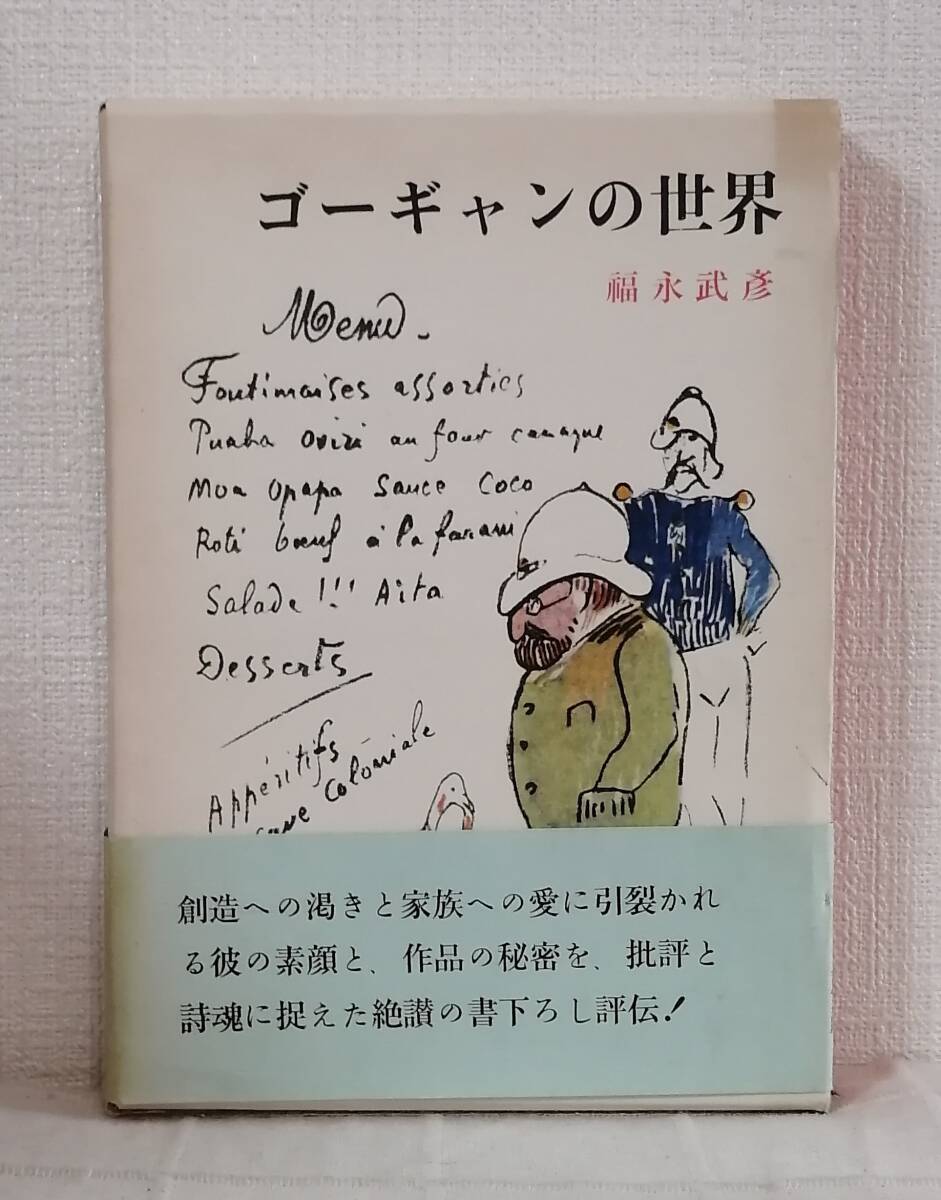 ゴーギャンの世界
福永武彦
Menu -
assorties
au four canaque
Moa Opapa Sauce Coco
Roti bœuf à la farani
Salade !!! Aita
Desserts
Appéritifs
Coloniale
創造への渇きと家族への愛に引裂かれ
る彼の素顔と、作品の秘密を、批評と
詩魂に捉えた絶讃の書下ろし評伝!